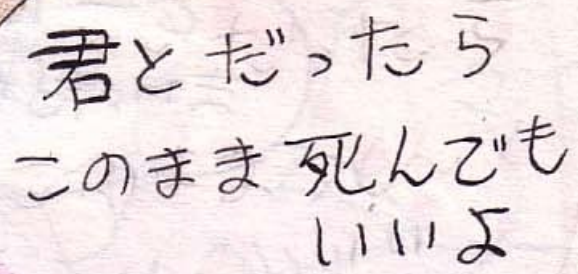 君とだったら
このまま死んでも
いいよ